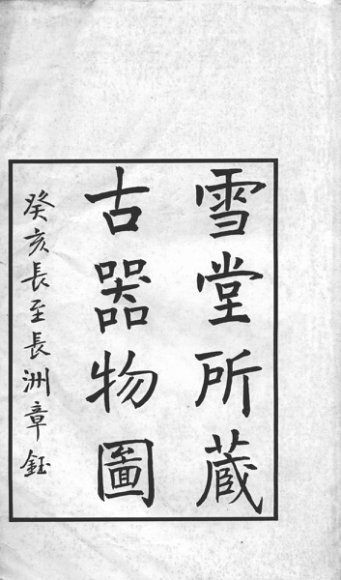 雪堂所蔵
古器物圖
癸亥長至長洲章鈺